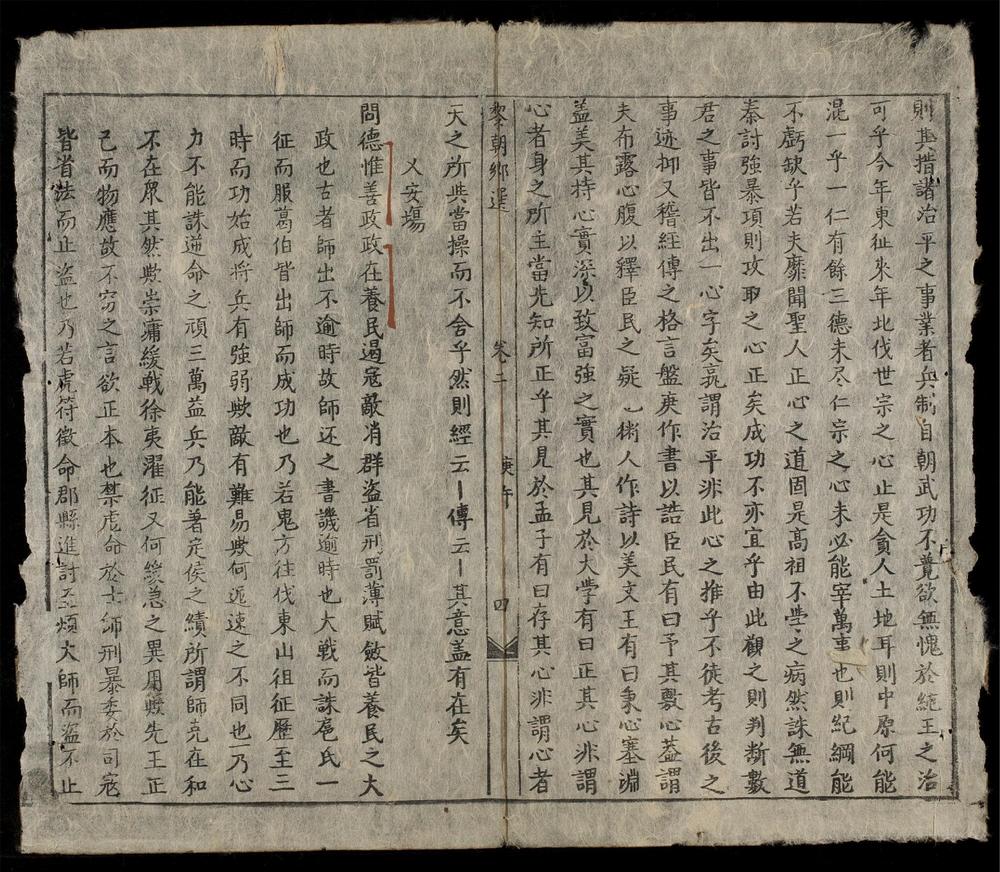 則其措諸治平之事業者兵制自朝武功不竟欲無愧於綂王之治
可乎今年東征來年北伐世宗之心止是貪人土地耳則中原何能
混一乎一仁有餘三德未尽仁宗之心未必能宰萬事也則紀綱能
不虧缺乎若夫靡聞聖人正心之道固是高祖不孝之病然誅無道
秦討強暴項則攻取之心正矣成功不亦宜乎由此觀之則判断數
君之事皆不出一心字矣孰謂治平非此心之推乎不徒考古後之
事迹抑又稽經傳之格言盤庚作書以誥臣民有曰予其敷心葢謂
夫布露心腹以釋臣民之疑也衛人作詩以美文王有曰秉心塞淵
盖美其持心實深以致富強之實也其見於大学有曰正其心非謂
心者身之所主當先知所正乎其見於孟子有曰存其心非謂心者
黎朝鄉選 卷二 庚午 四
天之所與當操而不舍乎然則經云〡傳云〡其意盖有在矣
乂安場
問德惟善政政在養民遏寇敵消群盜省刑罰薄賦斂皆養民之大
政也古者師出不逾時故師还之書譏逾時也大戰而誅扈氏一
征而服葛伯皆出師而成功也乃若鬼方往伐東山徂征歷至三
時而功始成將兵有強弱歟敵有難易歟何遲速之不同也一乃心
力不能誅逆命之頑三萬益兵乃能著定侯之績所謂師克在和
不在眾其然歟崇墉緩戰徐夷濯征又何緩急之異用歟先王正
己而物應故不窃之言欲正本也禁虐命於士師刑暴委於司寇
皆省法而止盜也乃若虎符徵命郡縣進討亟煩大師而盜不止